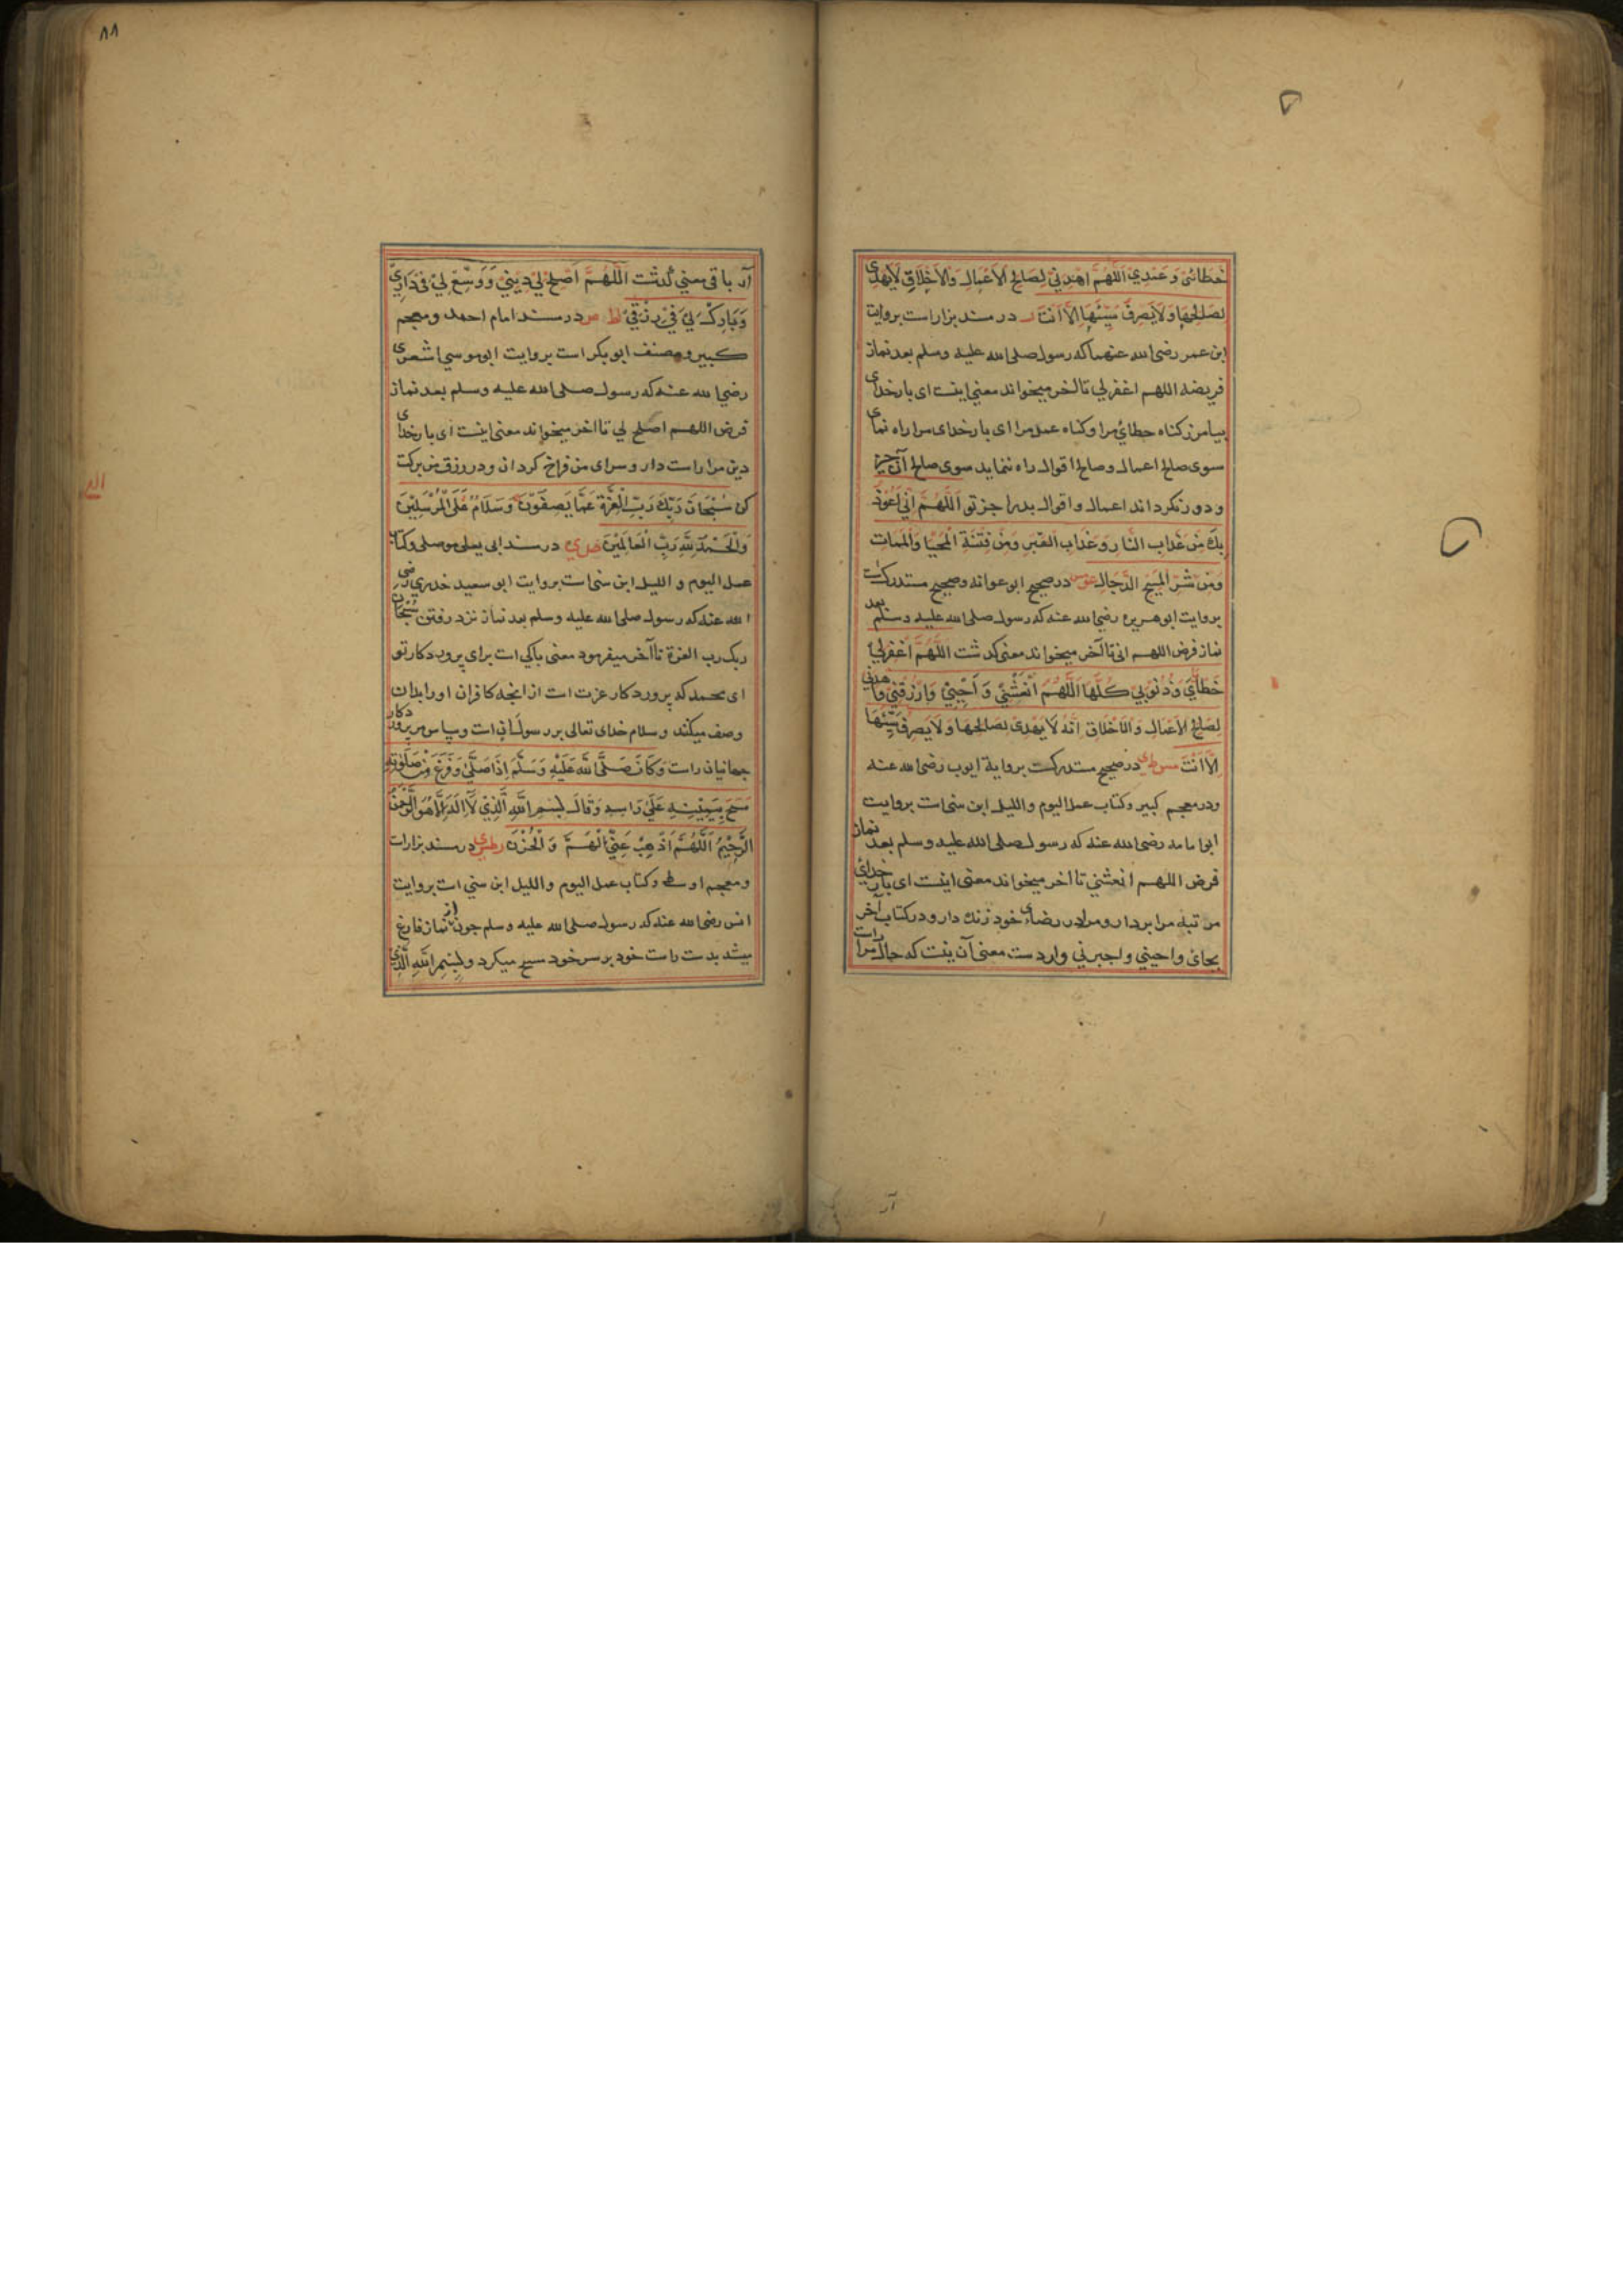 خطائی وَعَمْدِي اَللّٰهُمَّ اهْدِنِيْ لِصَالِحِ الْاَعْمَالِ وَالْاَخْلَاقِ لَايَهْدِی
لِصَالِحِهَا وَلَايَصْرِفُ سَيِّئَهَا اِلَّا اَنْتَ ر در مسند بزار است بروایت
ابن عمر رضی الله عنهما که رسول صلی الله علیه وسلم بعد نماز
فریضه اللهم اغفرلي تا آخر میخواند معنی اینست ای بار خدای
بیامرز کناه خطائ مرا وکناه عمد مرا ای بار خدای مرا راه نمای
سوی صالح اعمال و صالح اقوال راه ننماید سوی صالح آن جز
و دور نکرداند اعمال و اقوال بد را جز تو اَللّٰهُمَّ اِنِّي اَعُوْذُ
بِكَ مِنْ عَذَابِ النَّارِ وَعَذَابِ الْقَبْرِ وَمِنْ فِتْنَةِ الْمَحْيَا وَالْمَمَاتِ
وَمِنْ شَرِّ الْمَسِيْحِ الدَّجَّالِ عو مس در صحیح ابو عوانه و صحیح مستدرکست
بروایت ابو هریره رضی الله عنه که رسول صلی الله علیه وسلم بعد
نماز فرض اللهم انی تا آخر میخواند معنی کذشت اَللّٰهُمَّ اغْفِرْلِيْ
خَطَايَايَ وَذُنُوْبِي كُلَّهَا اَللّٰهُمَّ اَنْعِشْنِيْ وَ اَحْيِنِيْ وَارْزُقْنِيْ وَاهْدِنِي
لِصَالِحِ الْاَعْمَالِ وَالْاَخْلَاقِ اِنَّهُ لَا يَهْدِی لِصَالِحِهَا وَلَا يَصْرِفُ سَيِّئَهَا
اِلَّا اَنْتَ مس ط ی در صحیح مستدرکست بروایة ایوب رضی الله عنه
ودر معجم کبیر وکتاب عمل الیوم واللیل ابن سنی است بروایت
ابی امامه رضی الله عنه که رسول صلی الله علیه وسلم بعد نماز
فرض اللهم انعشني تا اخر میخواند معنی اینست ای بار خدای
مرتبه مرا بردار و مرا در رضای خود زنده دار و در کتاب آخر
بجای واحیني واجبرني وارد ست معنی آن اینست که حال مرا راست
آر
٨٨
آر باقی معني کذشت اَللّٰهُمَّ اَصْلِحْ لِيْ دِيْنِيْ وَوَسِّعْ لِيْ فِیْ دَارِيْ
وَبَارِكْ لِيْ فِيْ رِزْقِيْ ا ط مص در مسند امام احمد ومعجم
کبیر ومصنف ابو بکر است بروایت ابو موسي اشعری
رضي الله عنه که رسول صلی الله علیه وسلم بعد نماز
فرض اللهم اصلح لي تا اخر میخواند معنی اینست ای بار خدای
دین مرا راست دار و سرای من فراخ کردان ودر رزق من برکت
کن سُبْحَانَ رَبِّكَ رَبِّ الْعِزَّةِ عَمَّا يَصِفُوْنَ وَسَلَامٌ عَلَی الْمُرْسَلِيْنَ
وَالْحَمْدُ لِلّٰهِ رَبِّ الْعَالَمِيْنَ ص ي در مسند ابی یعلی موصلی وکتاب
عمل الیوم و اللیل ابن سنی است بروایت ابو سعید خدري رضی
الله عنه که رسول صلی الله علیه وسلم بعد نماز نزد رفتن سبحان
ربک رب العزة تا آخر میفرمود معنی پاکي است برای پروردکار تو
ای محمد که پروردکار عزت است از انجه کافران اورا بدان
وصف میکنند و سلام خدای تعالی بر رسولان است وسپاس مر پروردکار
جهانیان راست وَكَانَ صَلَّی اللّٰهُ عَلَيْهِ وَسَلَّمَ اِذَا صَلّٰی وَفَرَغَ مِنْ صَلٰوتِهِ
مَسَحَ بِيَمِيْنِهِ عَلٰی رَاسِهِ وَقَالَ بِسْمِ اللّٰهِ الَّذِيْ لَا اِلٰهَ اِلَّا هُوَ الرَّحْمٰنُ
الرَّحِيْمُ اَللّٰهُمَّ اَذْهِبْ عَنِّي الْهَمَّ وَ الْحُزْنَ ر طس ي در مسند بزار است
و معجم اوسط وکتاب عمل الیوم واللیل ابن سني است بروایت
انس رضی الله عنه که رسول صلی الله علیه وسلم چون از نماز فارغ
میشد بدست راست خود بر سر خود مسح میکرد و بِسْمِ اللّٰهِ الَّذِيْ